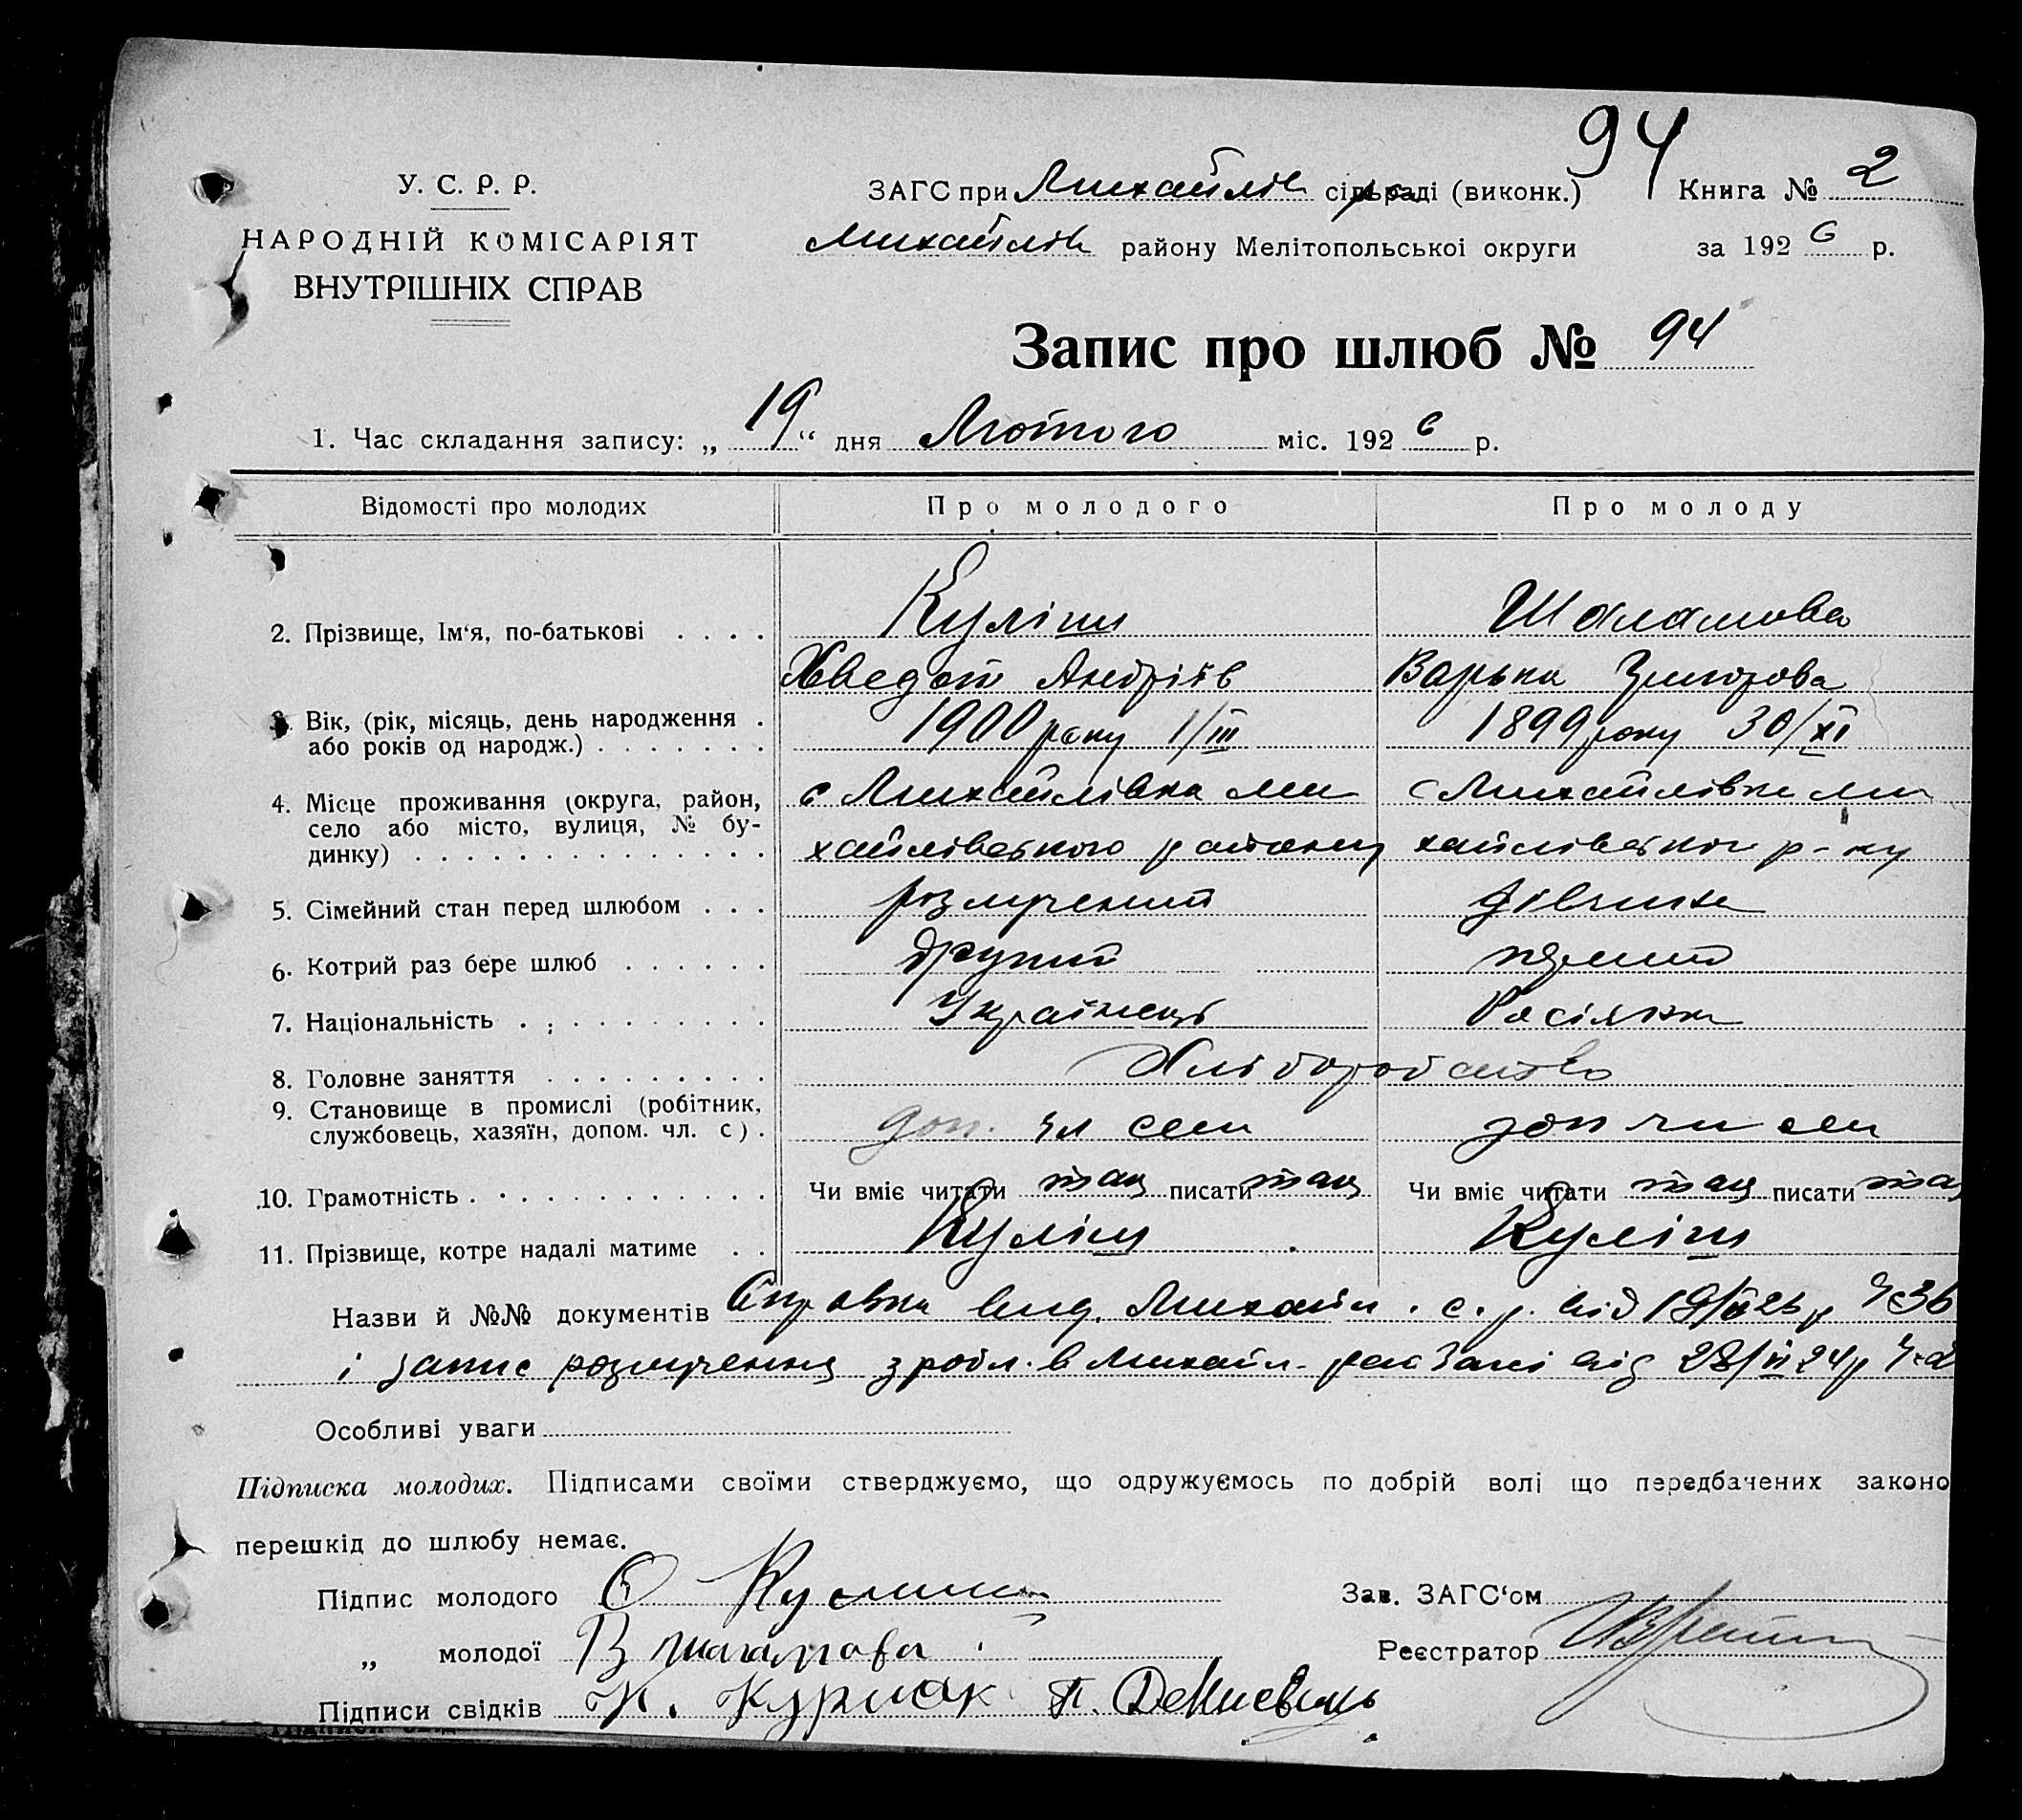 94
У. С. Р. Р.
НАРОДНІЙ КОМІСАРІЯТ
ВНУТРІШНІХ СПРАВ
ЗАГС при Михайлів сільраді (виконк.) Книга № 2
Михайлів району Мелітопольської округи за 1926 р.
Запис про шлюб № 94
1. Час складання запису: „ 19 “ дня Лютого міс. 1926 р.
Відомості про молодих Про молодого Про молоду
2. Прізвище, Ім‘я, по-батькові . . . . Куліш Шаламова
Хведот Андріїв Варька
3. Вік, (рік, місяць, день народження . 1900 року 1/III 1899 року 30/XI
або років од народж.) . . . . . . .
4. Місце проживання (округа, район, с Михайлівка Ми с Михайлівка Ми
село або місто, вулиця, № бу-
динку) . . . . . . . . . . . . . . хайлівського району хайлівського р-ну
5. Сімейний стан перед шлюбом . . . розлучений дівчина
6. Котрий раз бере шлюб . . . . . . другий перший
7. Національність . . . . . . . . . . Українець Росіянка
8. Головне заняття . . . . . . . . . Хліборобство
9. Становище в промислі (робітник, доп. чл сем доп чл сем
службовець, хазяїн, допом. чл. с) .
10. Грамотність . . . . . . . . . . . . Чи вміє читати так писати так Чи вміє читати так писати так
11. Прізвище, котре надалі матиме . . Куліш Куліш
Назви й №№ документів Справка вид. Михайл. с. р. від
і запис розлучення зробл. в Михайл. від
Особливі уваги
Підписка молодих. Підписами своїми стверджуємо, що одружуємось по добрій волі що передбачених законо
перешкід до шлюбу немає.
Підпис молодого Ѳ Кулиш Зав. ЗАГС‘ом
„ молодої В Шаламова Реєстратор
Підписи свідків К. Курпак П.